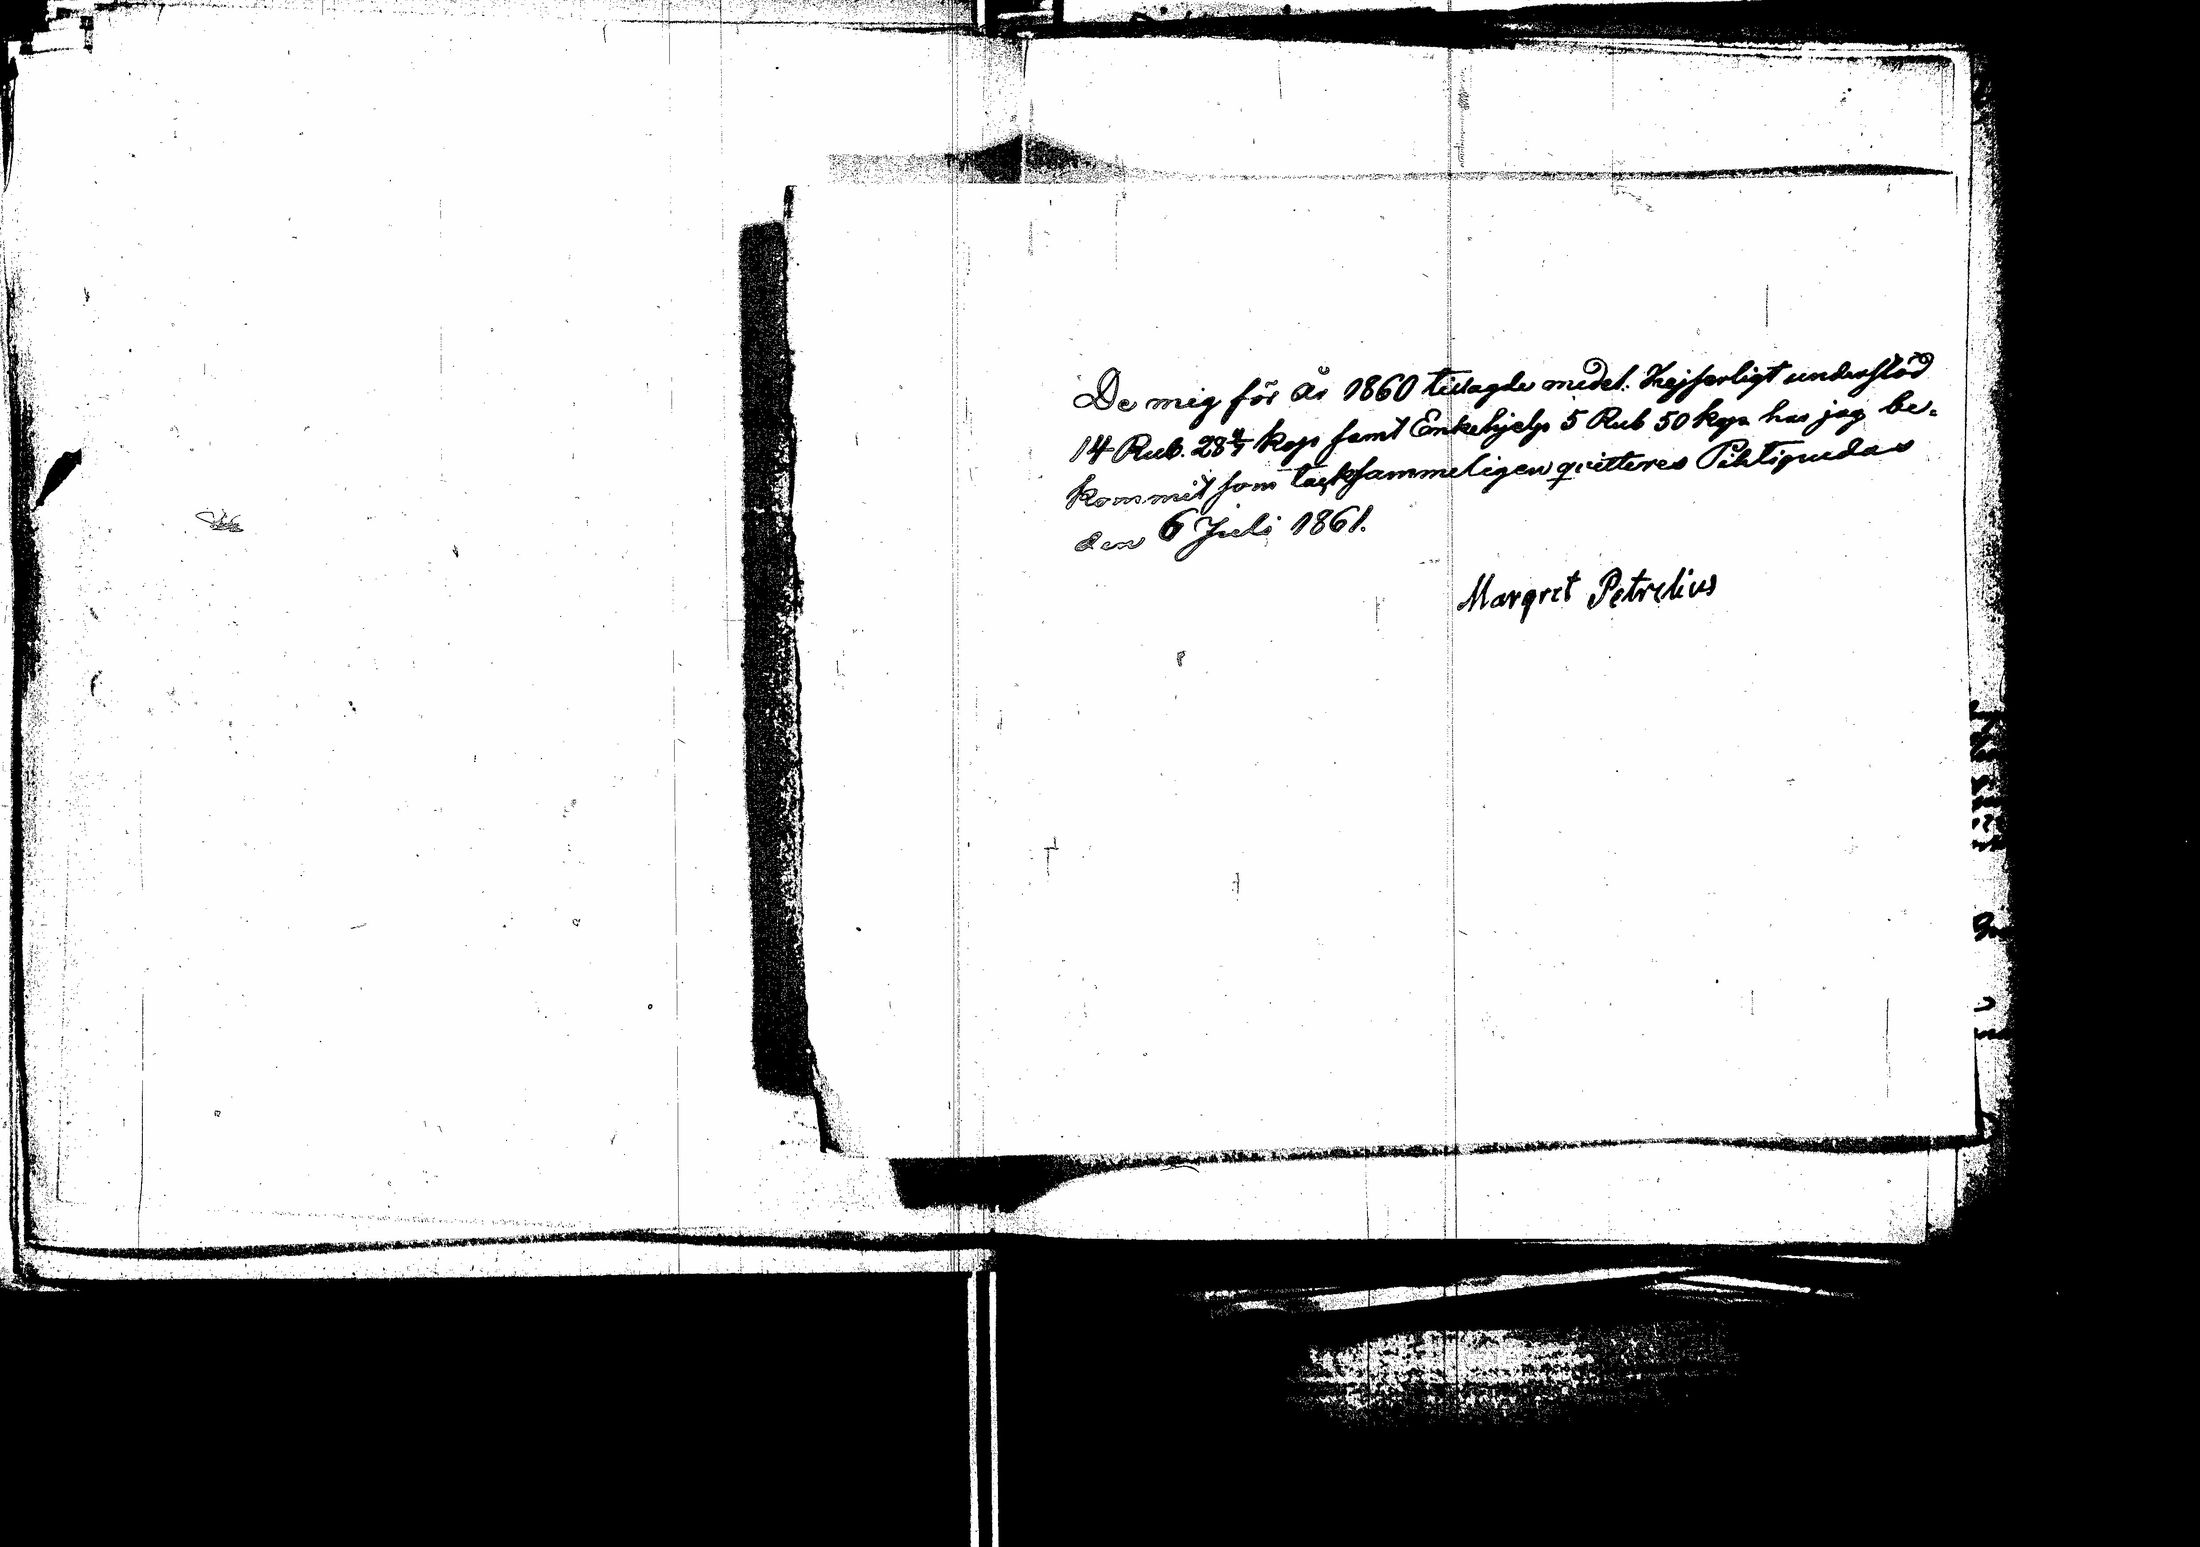 De mig för år 1860 tillagde medel. Kejserligt understöd
14 Rub. 28 4/7 kop samt Enkehjelp 5 Rub 50 kop har jag be-
kommit som tacksammeligen qvitteres Pihtipudas
den 6 Juli 1861.
Margret Petrelius